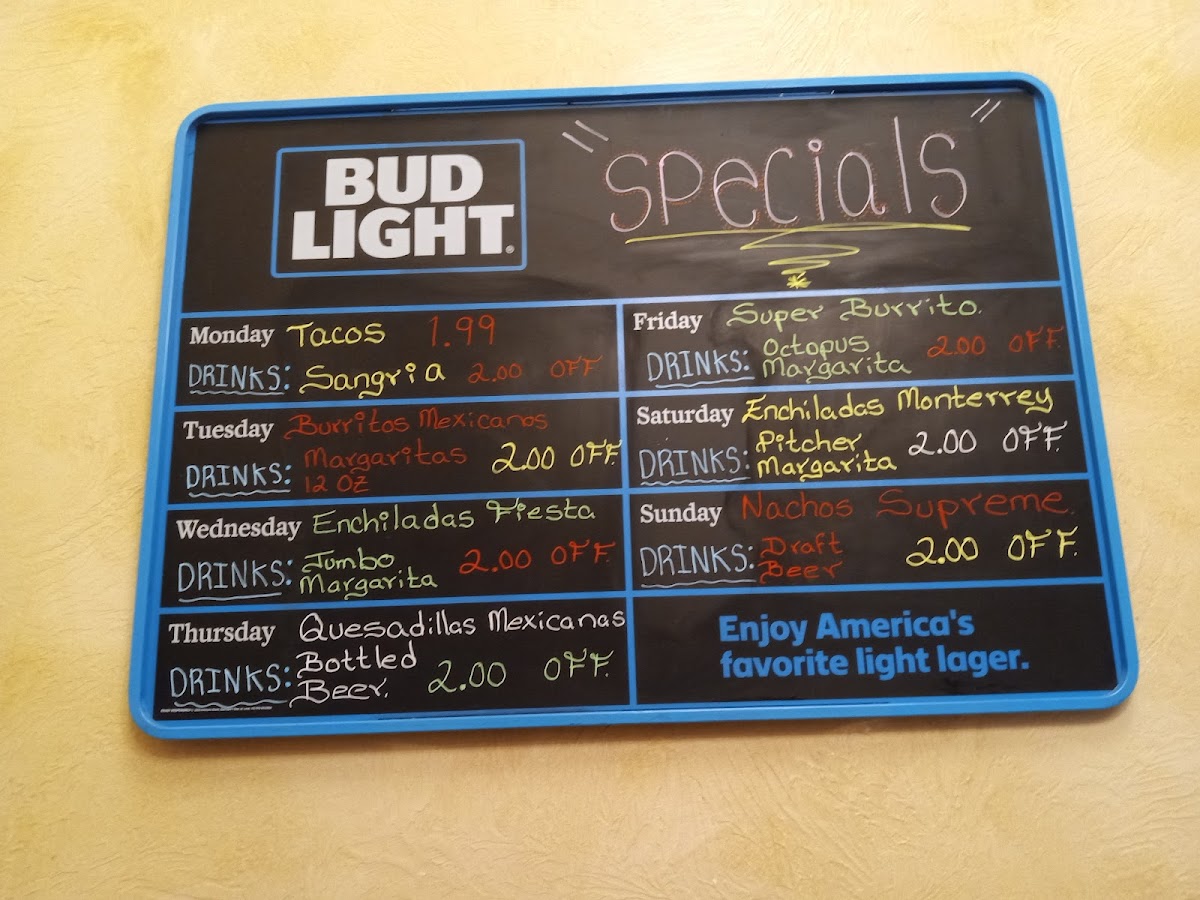 BUD
LIGHT
"Specials"
Monday Tacos 1.99
DRINKS: Sangria 2.00 OFF
Tuesday Burritos Mexicanos
DRINKS: Margaritas 2.00 OFF
12 OZ
Wednesday Enchiladas Fiesta
DRINKS: Jumbo 2.00 OFF.
Margarita
Thursday Quesadillas Mexicanas
DRINKS: Bottled 2.00 OFF.
Beer.
Friday Super Burrito.
DRINKS: Octopus 2.00 OFF.
Margarita
Saturday Enchiladas Monterrey
DRINKS: Pitcher 2.00 OFF.
Margarita
Sunday Nachos Supreme.
DRINKS: Draft 2.00 OFF.
Beer
Enjoy America's
favorite light lager.